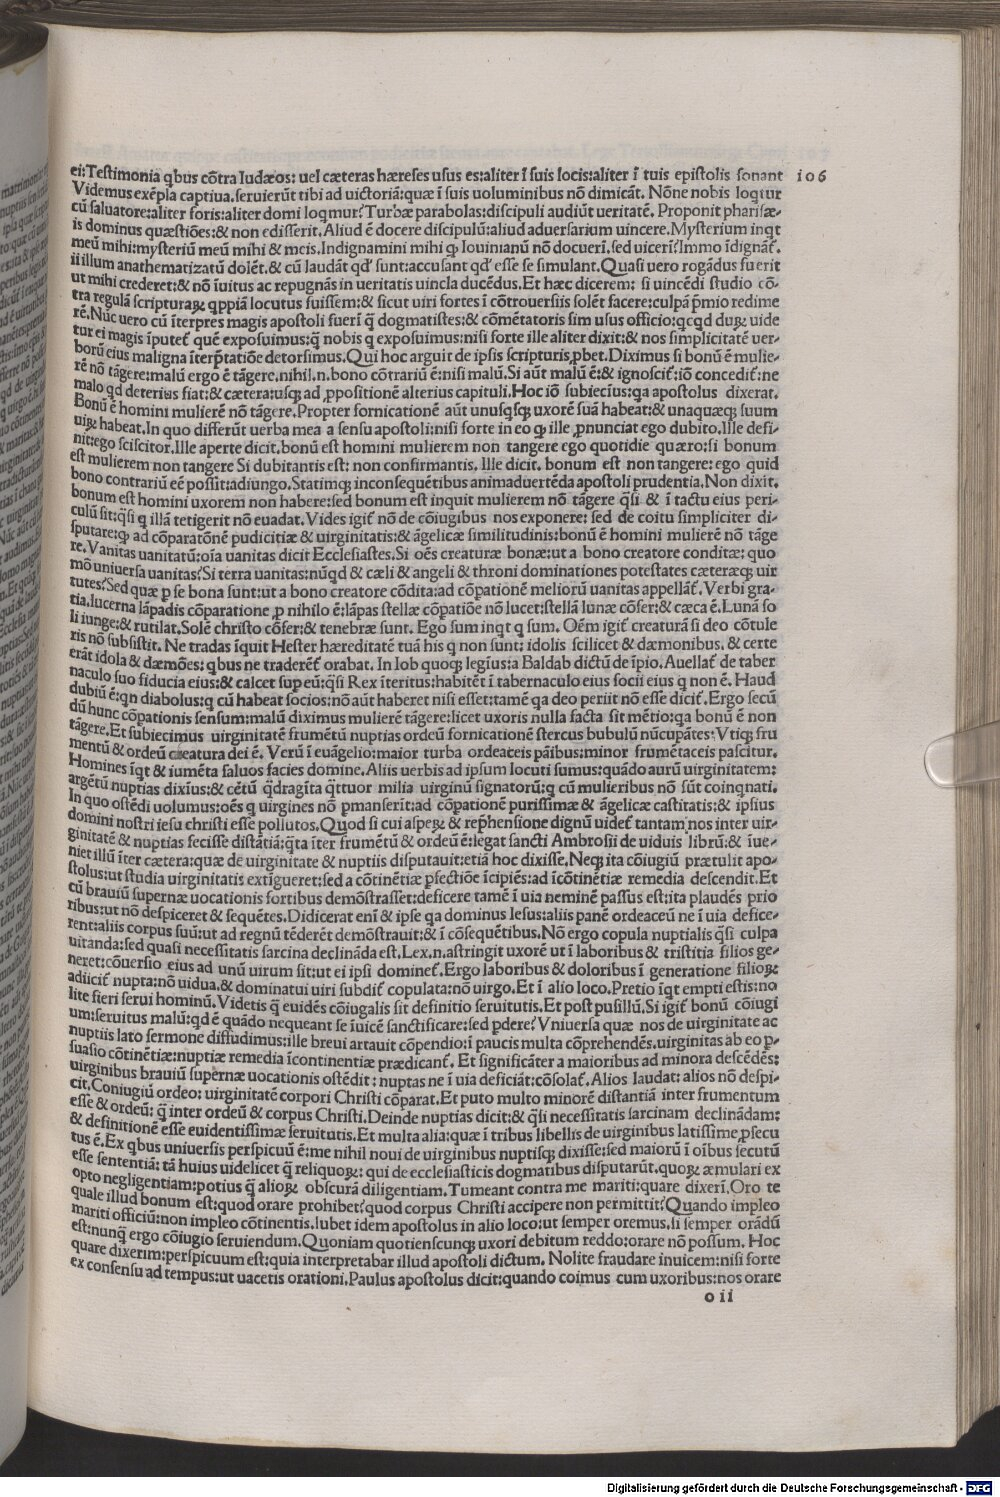 ei:Testimonia qbus cõtra Iudæos: uel cæteras hæreses usus es:aliter ĩ suis locis:aliter ĩ tuis epistolis sonant 106
Videmus exẽpla captiua.seruierũt tibi ad uictoriã:quæ ĩ suis uoluminibus nõ dimicãt. Nõne nobis loqtur
cũ saluatore:aliter foris:aliter domi loqmur?Turbæ parabolas:discipuli audiũt ueritatẽ. Proponit pharisæ-
is dominus quæstiões:& non edisserit. Aliud ẽ docere discipulũ:aliud aduersarium uincere.Mysterium inqt
meũ mihi:mysteriũ meũ mihi & meis. Indignamini mihi ꝙ Iouinianũ nõ docueri.sed uiceri?Immo ĩdignãt̃.
ii illum anathematizatũ dolẽt.& cũ laudãt qd' sunt:accusant qd' esse se simulant.Quasi uero rogãdus fuerit
ut mihi crederet:& nõ ĩuitus ac repugnãs in ueritatis uincla ducẽdus.Et hæc dicerem: si uincẽdi studio cõ-
tra regulã scripturaꝝ qppiã locutus fuissem:& sicut uiri fortes ĩ cõtrouersiis solẽt facere:culpã p̃mio redime
rẽ.Nũc uero cũ ĩterpres magis apostoli fueri q̃ dogmatistes:& cõmẽtatoris sim usus officio:qcqd duꝝ uide
tur ei magis ĩputet̃ quẽ exposuimus:q̃ nobis q exposuimus:nisi forte ille aliter dixit:& nos simplicitatẽ uer-
borũ eius maligna ĩterp̃tatiõe detorsimus.Qui hoc arguit de ipsis scripturis ꝓbet.Diximus si bonũ ẽ mulie-
rẽ nõ tãgere:malũ ergo ẽ tãgere.nihil.n.bono cõtrariũ ẽ:nisi malũ.Si aũt malũ ẽ:& ignoscit̃:iõ concedit̃:ne
malo qd deterius fiat:& cætera:usqꝫ ad ꝓpositionẽ alterius capituli.Hoc iõ subiecius:qa apostolus dixerat.
Bonũ ẽ homini mulierẽ nõ tãgere.Propter fornicationẽ aũt unusqsqꝫ uxorẽ suã habeat:& unaquæqꝫ suum
uiꝝ habeat.In quo differũt uerba mea a sensu apostoli:nisi forte in eo ꝙ ille ꝓnunciat ego dubito.Ille defi-
nit:ego sciscitor.Ille aperte dicit.bonũ est homini mulierem non tangere ego quotidie quæro:si bonum
est mulierem non tangere Si dubitantis est: non confirmantis. Ille dicit. bonum est non tangere: ego quid
bono contrariũ eẽ possit:adiungo.Statimqꝫ inconsequẽtibus animaduertẽda apostoli prudentia.Non dixit.
bonum est homini uxorem non habere:sed bonum est inquit mulierem nõ tãgere q̃si & ĩ tactu eius peri-
culũ sit:q̃si q illã tetigerit nõ euadat.Vides igit̃ nõ de cõiugibus nos exponere: sed de coitu simpliciter di-
sputare:ꝙ ad cõparatõnẽ pudicitiæ & uirginitatis:& ãgelicæ similitudinis:bonũ ẽ homini mulierẽ nõ tãge
re.Vanitas uanitatũ:oĩa uanitas dicit Ecclesiastes.Si oẽs creaturæ bonæ:ut a bono creatore conditæ: quo
mõ uniuersa uanitas?Si terra uanitas:nũqd & cæli & angeli & throni dominationes potestates cæteræqꝫ uir
tutes?Sed quæ ꝑ se bona sunt:ut a bono creatore cõdita:ad cõpationẽ meliorũ uanitas appellãt̃. Verbi gra-
tia.lucerna lãpadis cõparatione ꝓ nihilo ẽ:lãpas stellæ cõpatiõe nõ lucet:stellã lunæ cõfer:& cæca ẽ.Lunã so
li iunge:& rutilat.Solẽ christo cõfer:& tenebræ sunt. Ego sum inqt q sum. Oẽm igit̃ creaturã si deo cõtule
ris nõ subsistit. Ne tradas ĩquit Hester hæreditatẽ tuã his q non sunt: idolis scilicet & dæmonibus. & certe
erãt idola & dæmões: qbus ne traderẽt̃ orabat. In Iob quoqꝫ legĩus:a Baldab dictũ de ĩpio.Auellat̃ de taber
naculo suo fiducia eius:& calcet sup eũ:q̃si Rex ĩteritus:habitẽt ĩ tabernaculo eius socii eius q non ẽ. Haud
dubiũ ẽ:qn diabolus:q cũ habeat socios:nõ aũt haberet nisi esset:tamẽ qa deo periit nõ esse dicit̃.Ergo secũ
dũ hunc cõpationis sensum:malũ diximus mulierẽ tãgere:licet uxoris nulla facta sit mẽtio:qa bonũ ẽ non
tãgere.Et subiecimus uirginitatẽ frumẽtũ nuptias ordeũ fornicationẽ stercus bubulũ nũcupãtes:Vtiqꝫ fru
mentũ & ordeũ creatura dei ẽ. Verũ ĩ euãgelio:maior turba ordeaceis pãibus:minor frumẽtaceis pascitur.
Homines ĩqt & iumẽta saluos facies domine.Aliis uerbis ad ipsum locuti sumus:quãdo aurũ uirginitatem:
argẽtũ nuptias dixĩus:& cẽtũ q̃dragĩta q̃ttuor milia uirginũ signatorũ:q cũ mulieribus nõ sũt coinqnati.
In quo ostẽdi uolumus:oẽs q uirgines nõ ꝑmanserĩt:ad cõpationẽ purissimæ & ãgelicæ castitatis:& ipsius
domini nostri iesu christi esse pollutos.Quod si cui aspeꝝ & rep̃hensione dignũ uidet̃ tantam nos inter uir-
ginitatẽ & nuptias fecisse distãtiã:q̃ta ĩter frumẽtũ & ordeũ ẽ:legat sancti Ambrosii de uiduis librũ:& ĩue-
niet illũ ĩter cætera:quæ de uirginitate & nuptiis disputauit:etiã hoc dixisse.Neqꝫ ita cõiugiũ prætulit apo-
stolus:ut studia uirginitatis extigueret:sed a cõtinẽtiæ ꝑfectiõe ĩcipiẽs:ad ĩcõtinẽtiæ remedia descendit.Et
cũ brauiũ supernæ uocationis fortibus demõstrasset:deficere tamẽ ĩ uia neminẽ passus est:ita plaudẽs prio
ribus:ut nõ despiceret & sequẽtes.Didicerat enĩ & ipse qa dominus Iesus:aliis panẽ ordeaceũ ne ĩ uia defice-
rent:aliis corpus suũ:ut ad regnũ tẽderẽt demõstrauit:& ĩ cõsequẽtibus.Nõ ergo copula nuptialis q̃si culpa
uitanda:sed quasi necessitatis sarcina declinãda est.Lex.n.astringit uxorẽ ut ĩ laboribus & tristitia filios ge-
neret:cõuersio eius ad unũ uirum sit:ut ei ipsi dominet̃.Ergo laboribus & doloribus ĩ generatione filioꝝ
adiicit̃ nupta:nõ uidua.& dominatui uiri subdit̃ copulata:nõ uirgo.Et ĩ alio loco.Pretio ĩqt empti estis:no
lite fieri serui hominũ.Videtis q̃ euidẽs cõiugalis sit definitio seruitutis.Et post pusillũ.Si igit̃ bonũ cõiugi
um:seruitus malũ:qd ẽ quãdo nequeant se ĩuicẽ sanctificare:sed pdere?Vniuersa quæ nos de uirginitate ac
nuptiis lato sermone diffudimus:ille breui artauit cõpendio:ĩ paucis multa cõprehendẽs.uirginitas ab eo ꝑ-
suasio cõtinẽtiæ:nuptiæ remedia ĩcontinentiæ prædicant̃. Et significãter a maioribus ad minora descẽdẽs:
uirginibus brauiũ supernæ uocationis ostẽdit: nuptas ne ĩ uia deficiãt:cõsolat̃.Alios laudat: alios nõ despi-
cit.Coniugiũ ordeo: uirginitatẽ corpori Christi cõparat.Et puto multo minorẽ distantiã inter frumentum
esse & ordeũ: q̃ inter ordeũ & corpus Christi.Deinde nuptias dicit:& q̃si necessitatis sarcinam declinãdam:
& definitionẽ esse euidentissimæ seruitutis.Et multa alia:quæ ĩ tribus libellis de uirginibus latissime ꝓsecu
tus ẽ.Ex qbus uniuersis perspicuũ ẽ:me nihil noui de uirginibus nuptisqꝫ dixisse:sed maiorũ ĩ oĩbus secutũ
esse sententiã: tã huius uidelicet q̃ reliquoꝝ: qui de ecclesiasticis dogmatibus disputarũt.quoꝝ æmulari ex
opto negligentiam:potius q̃ alioꝝ obscurã diligentiam.Tumeant contra me mariti:quare dixerĩ.Oro te
quale illud bonum est:quod orare prohibet?quod corpus Christi accipere non permittit?Quando impleo
mariti officiũ:non impleo cõtinentis.Iubet idem apostolus in alio loco:ut semper oremus.si semper orãdũ
est:nunq̃ ergo cõiugio seruiendum.Quoniam quotienscunqꝫ uxori debitum reddo:orare nõ possum. Hoc
quare dixerim:perspicuum est:quia interpretabar illud apostoli dictum. Nolite fraudare inuicem:nisi forte
ex consensu ad tempus:ut uacetis orationi.Paulus apostolus dicit:quando coimus cum uxoribus:nos orare
o ii
Digitalisierung gefördert durch die Deutsche Forschungsgemeinschaft - DFG